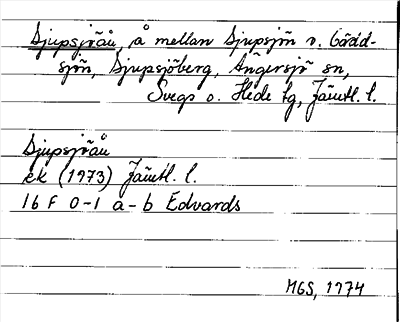 Djupsjöån, å mellan Djupsjön o. Gädd-
sjön, Djupsjöberg, Ängersjö sn,
Svegs o. Hede tg, Jämtl. l.
Djupsjöån
ek (1973) Jämtl. l.
16 F 0-1 a-b Edvards
MGS, 1974